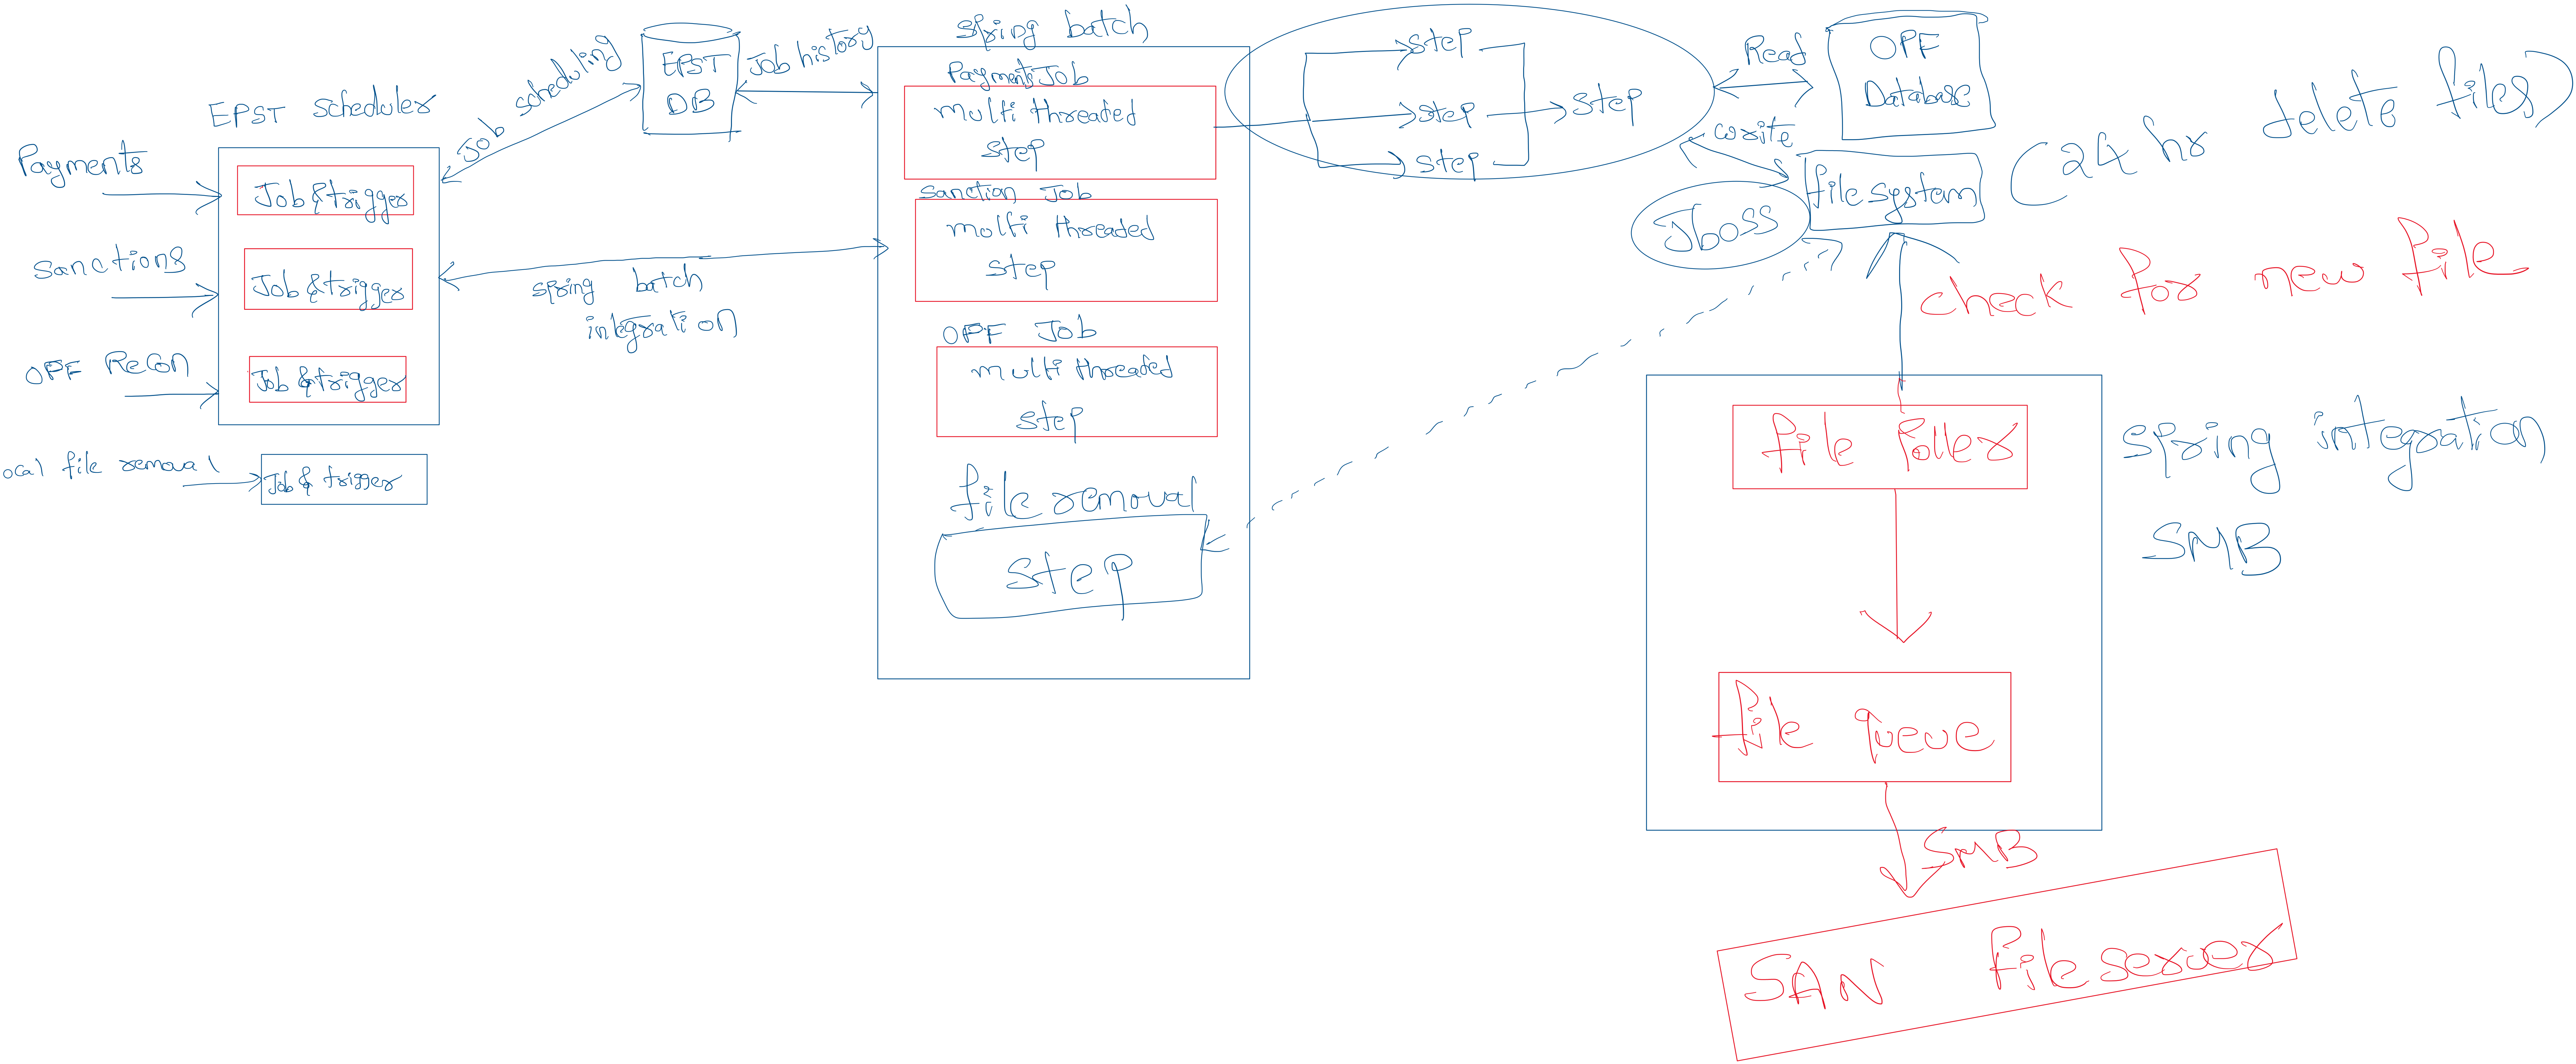 EPST Scheduler
Payments
Job & trigger
Sanctions
Job & trigger
OPF Recon
Job & trigger
ocal file removal
Job & trigger
Job scheduling
EPST
DB
Job history
spring batch
integration
Spring batch
Payments Job
multi threaded
step
Sanction Job
multi threaded
step
OPF Job
multi threaded
step
file removal
step
step
step
step
step
Read
OPF
Database
write
file system
Jboss
(24 hr delete files)
check for new file
file Poller
file queue
spring integration
SMB
SMB
SAN file server